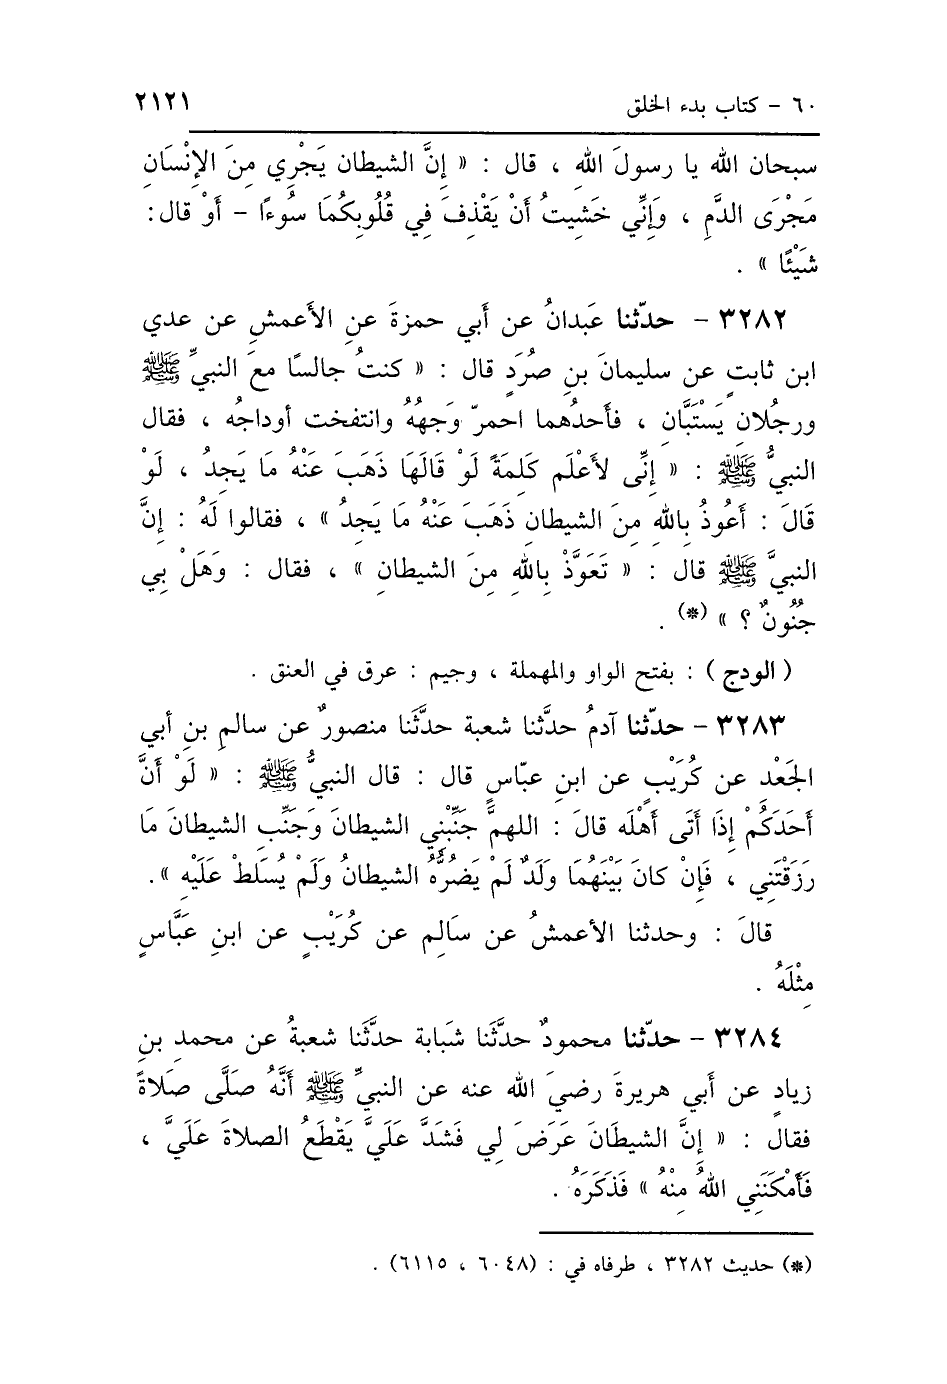 ٦٠ - كتاب بدء الخلق ٢١٢١
سبحان الله يا رسولَ اللهِ ، قال : « إِنَّ الشيطان يَجْرِي مِنَ الإِنْسَانِ
مَجْرَى الدَّمِ ، وَإِنِّي خَشِيتُ أَنْ يَقْذِفَ فِي قُلُوبِكُمَا سُوءًا - أَوْ قال :
شَيْئًا » .
٣٢٨٢ - حدّثنا عَبدانُ عن أَبي حمزةَ عنِ الأَعمشِ عن عدي
ابن ثابتٍ عن سليمانَ بنِ صُرَدٍ قال : « كنتُ جالسًا معَ النبيِّ ﷺ
ورجُلانِ يَسْتَبَّانِ ، فأَحدُهما احمرّ وَجهُهُ وانتفخت أوداجُه ، فقال
النبيُّ ﷺ : « إِنِّى لأَعْلَم كَلِمَةً لَوْ قَالَهَا ذَهَبَ عَنْهُ مَا يَجِدُ ، لَوْ
قَالَ : أَعُوذُ بِاللهِ مِنَ الشيطانِ ذَهَبَ عَنْهُ مَا يَجِدُ » ، فقالوا لَهُ : إِنَّ
النبيَّ ﷺ قال : « تَعَوَّذْ بِاللهِ مِنَ الشيطانِ » ، فقال : وَهَلْ بِي
جُنُونٌ ؟ » (*) .
( الودج ) : بفتح الواو والمهملة ، وجيم : عرق في العنق .
٣٢٨٣ - حدّثنا آدمُ حدَّثنا شعبة حدَّثَنا منصورٌ عن سالمِ بنِ أَبي
الجَعْدِ عن كُرَيْبٍ عن ابنِ عبّاسٍ قال : قال النبيُّ ﷺ : « لَوْ أَنَّ
أَحَدَكُمْ إِذَا أَتَى أَهْلَه قالَ : اللهمَّ جَنِّبْنِي الشيطانَ وَجَنِّبِ الشيطانَ مَا
رَزَقْتَنِي ، فَإِنْ كانَ بَيْنَهُمَا وَلَدٌ لَمْ يَضُرُّهُ الشيطانُ وَلَمْ يُسَلطْ عَلَيْهِ » .
قالَ : وحدثنا الأعمشُ عن سَالِمٍ عن كُرَيْبٍ عن ابنِ عَبَّاسٍ
مِثْلَهُ .
٣٢٨٤ - حدّثنا محمودٌ حدَّثَنا شَبابة حدَّثَنا شعبةُ عن محمدِ بنِ
زيادٍ عن أَبي هريرةَ رضيَ الله عنه عن النبيِّ ﷺ أَنَّهُ صَلَّى صَلاةً
فقال : « إِنَّ الشيطَانَ عَرَضَ لِي فَشَدَّ عَلَيَّ يَقْطَعُ الصلاةَ عَلَيَّ ،
فَأَمْكَنَنِي اللهُ مِنْهُ » فَذَكَرَهُ .
(*) حديث ٣٢٨٢ ، طرفاه في : (٦٠٤٨ ، ٦١١٥) .